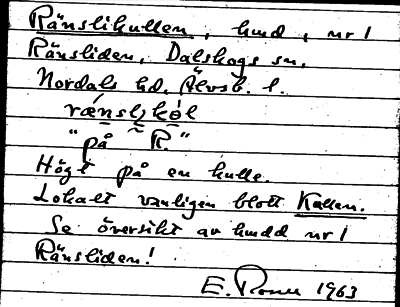 Ränslikullen, hmd, nr 1
Ränsliden, Dalskogs sn,
Nordals hd, Älvsb. l.
"på R."
Högt på en kulle.
Lokalt vanligen blott Kullen.
Se översikt av hmdd nr 1
Ränsliden!
E. 1963